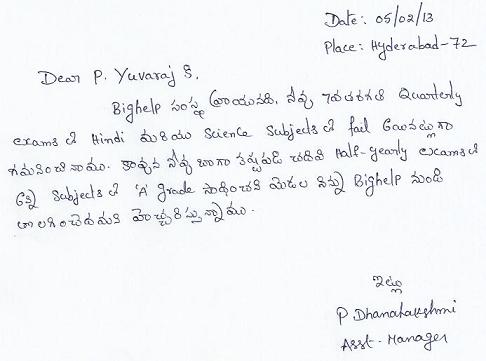 Date: 05/02/13
Place: Hyderabad-72
Dear P. Yuvaraj S.
Bighelp సంస్థ వ్రాయునది. నీవు 7వతరగతి Quarterly
exams లో Hindi మరియు Science Subjects లో fail అయినట్లుగా
గమనించినాము. కావున నీవు బాగా కష్టపడి చదివి Half-yearly exams లో
అన్ని Subjects లో 'A' grade సాధించని యెడల నిన్ను Bighelp నుండి
తొలగించెదమని హెచ్చరిస్తున్నాము.
ఇట్లు
P Dhanalakshmi
Asst. Manager